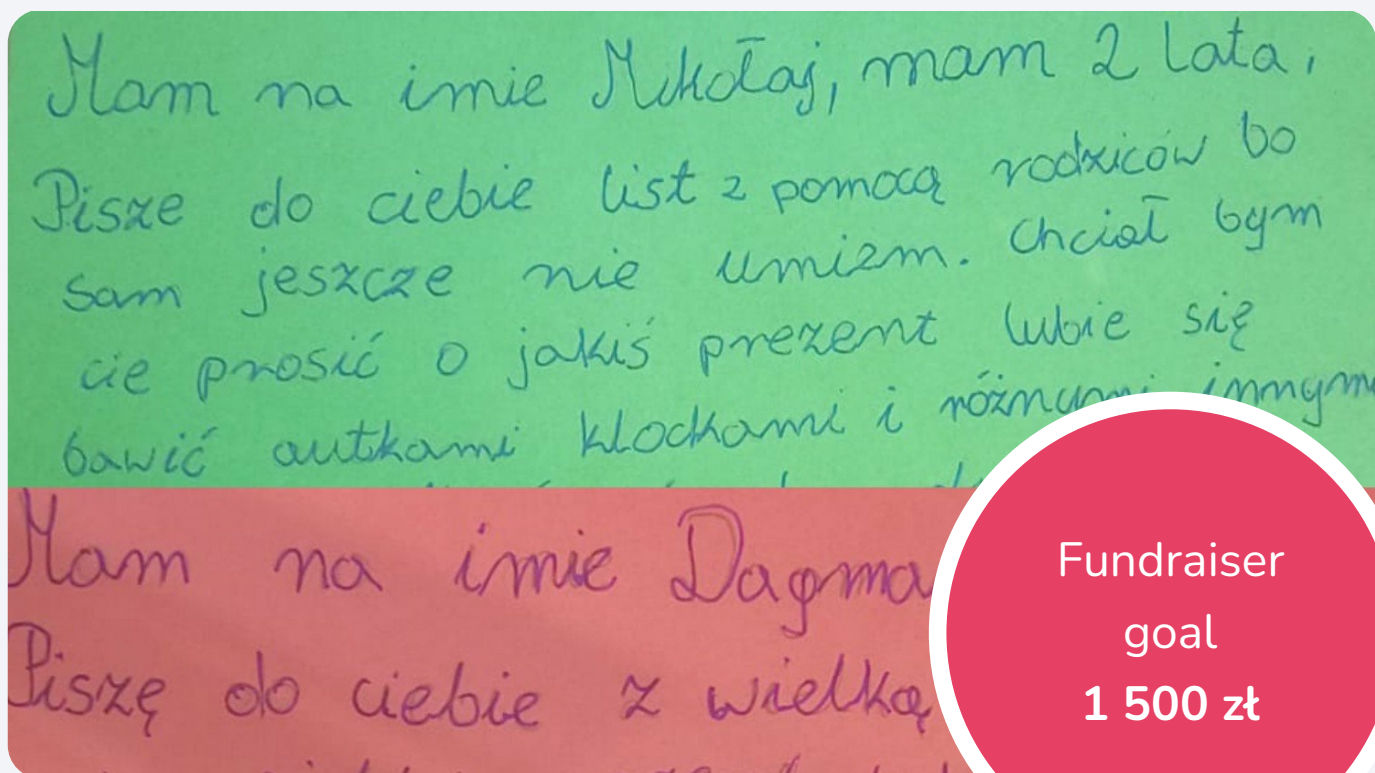 Mam na imie Mikołaj, mam 2 lata,
Pisze do ciebie list z pomocą rodziców bo
sam jeszcze nie umiem. Chciał bym
cie prosić o jakiś prezent lubie się
bawić autkami klockami i różnymi innymi
Mam na imie
Piszę do ciebie z wielką
Fundraiser
goal
1 500 zł